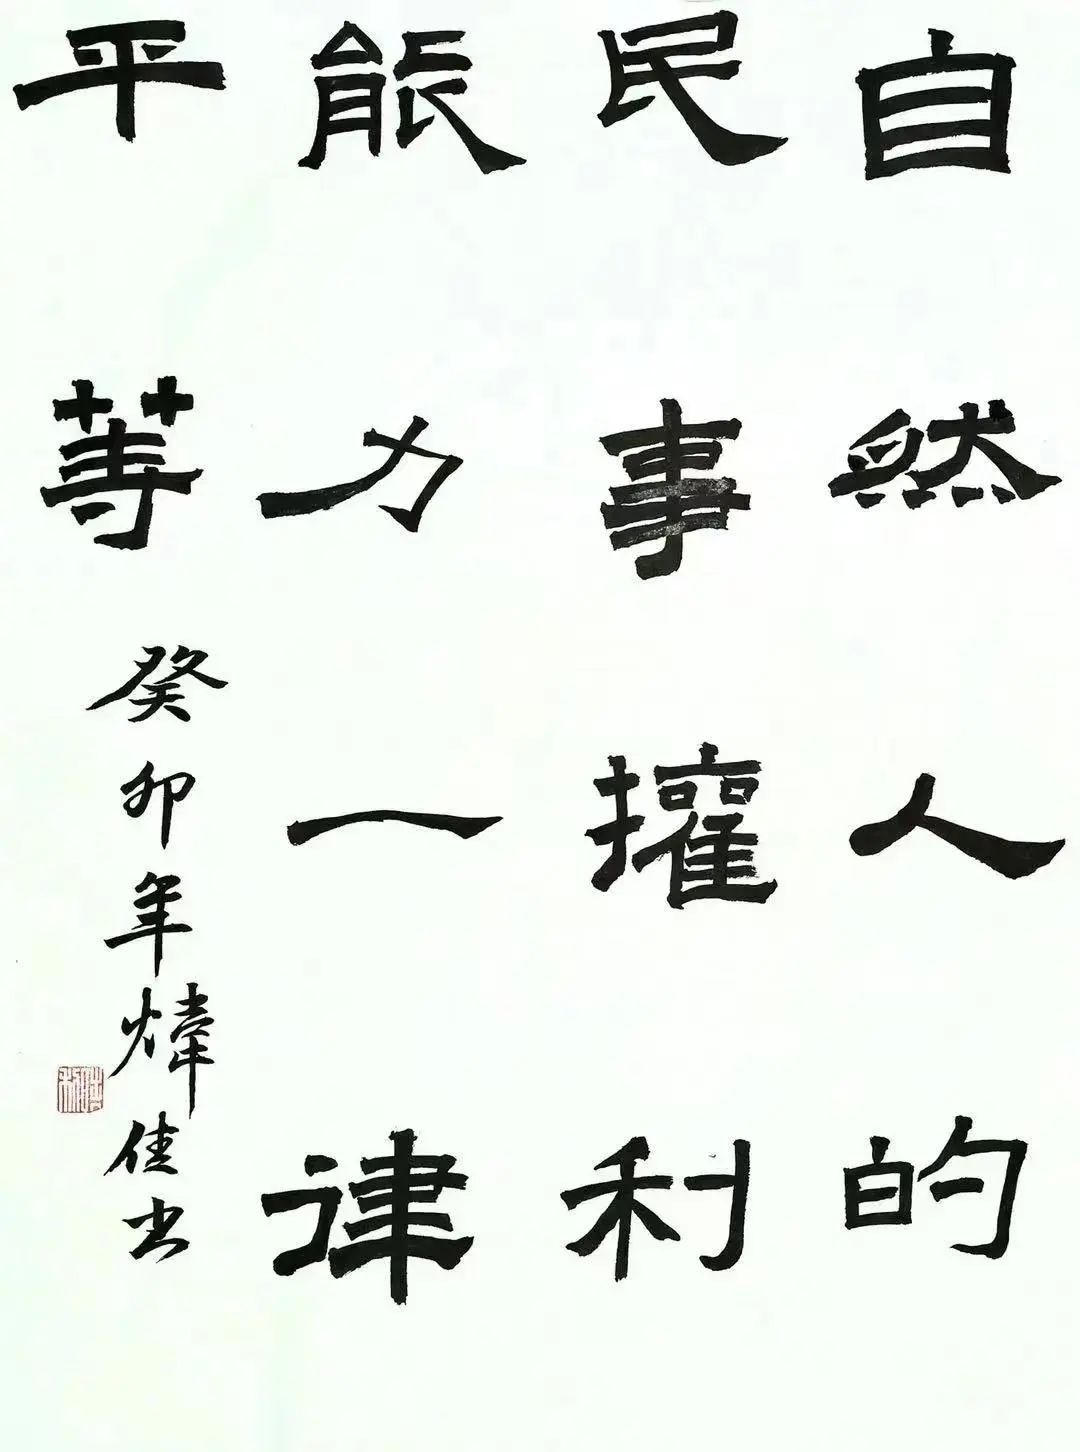 自然人的
民事權利
能力一律
平等
癸卯年煒佳书